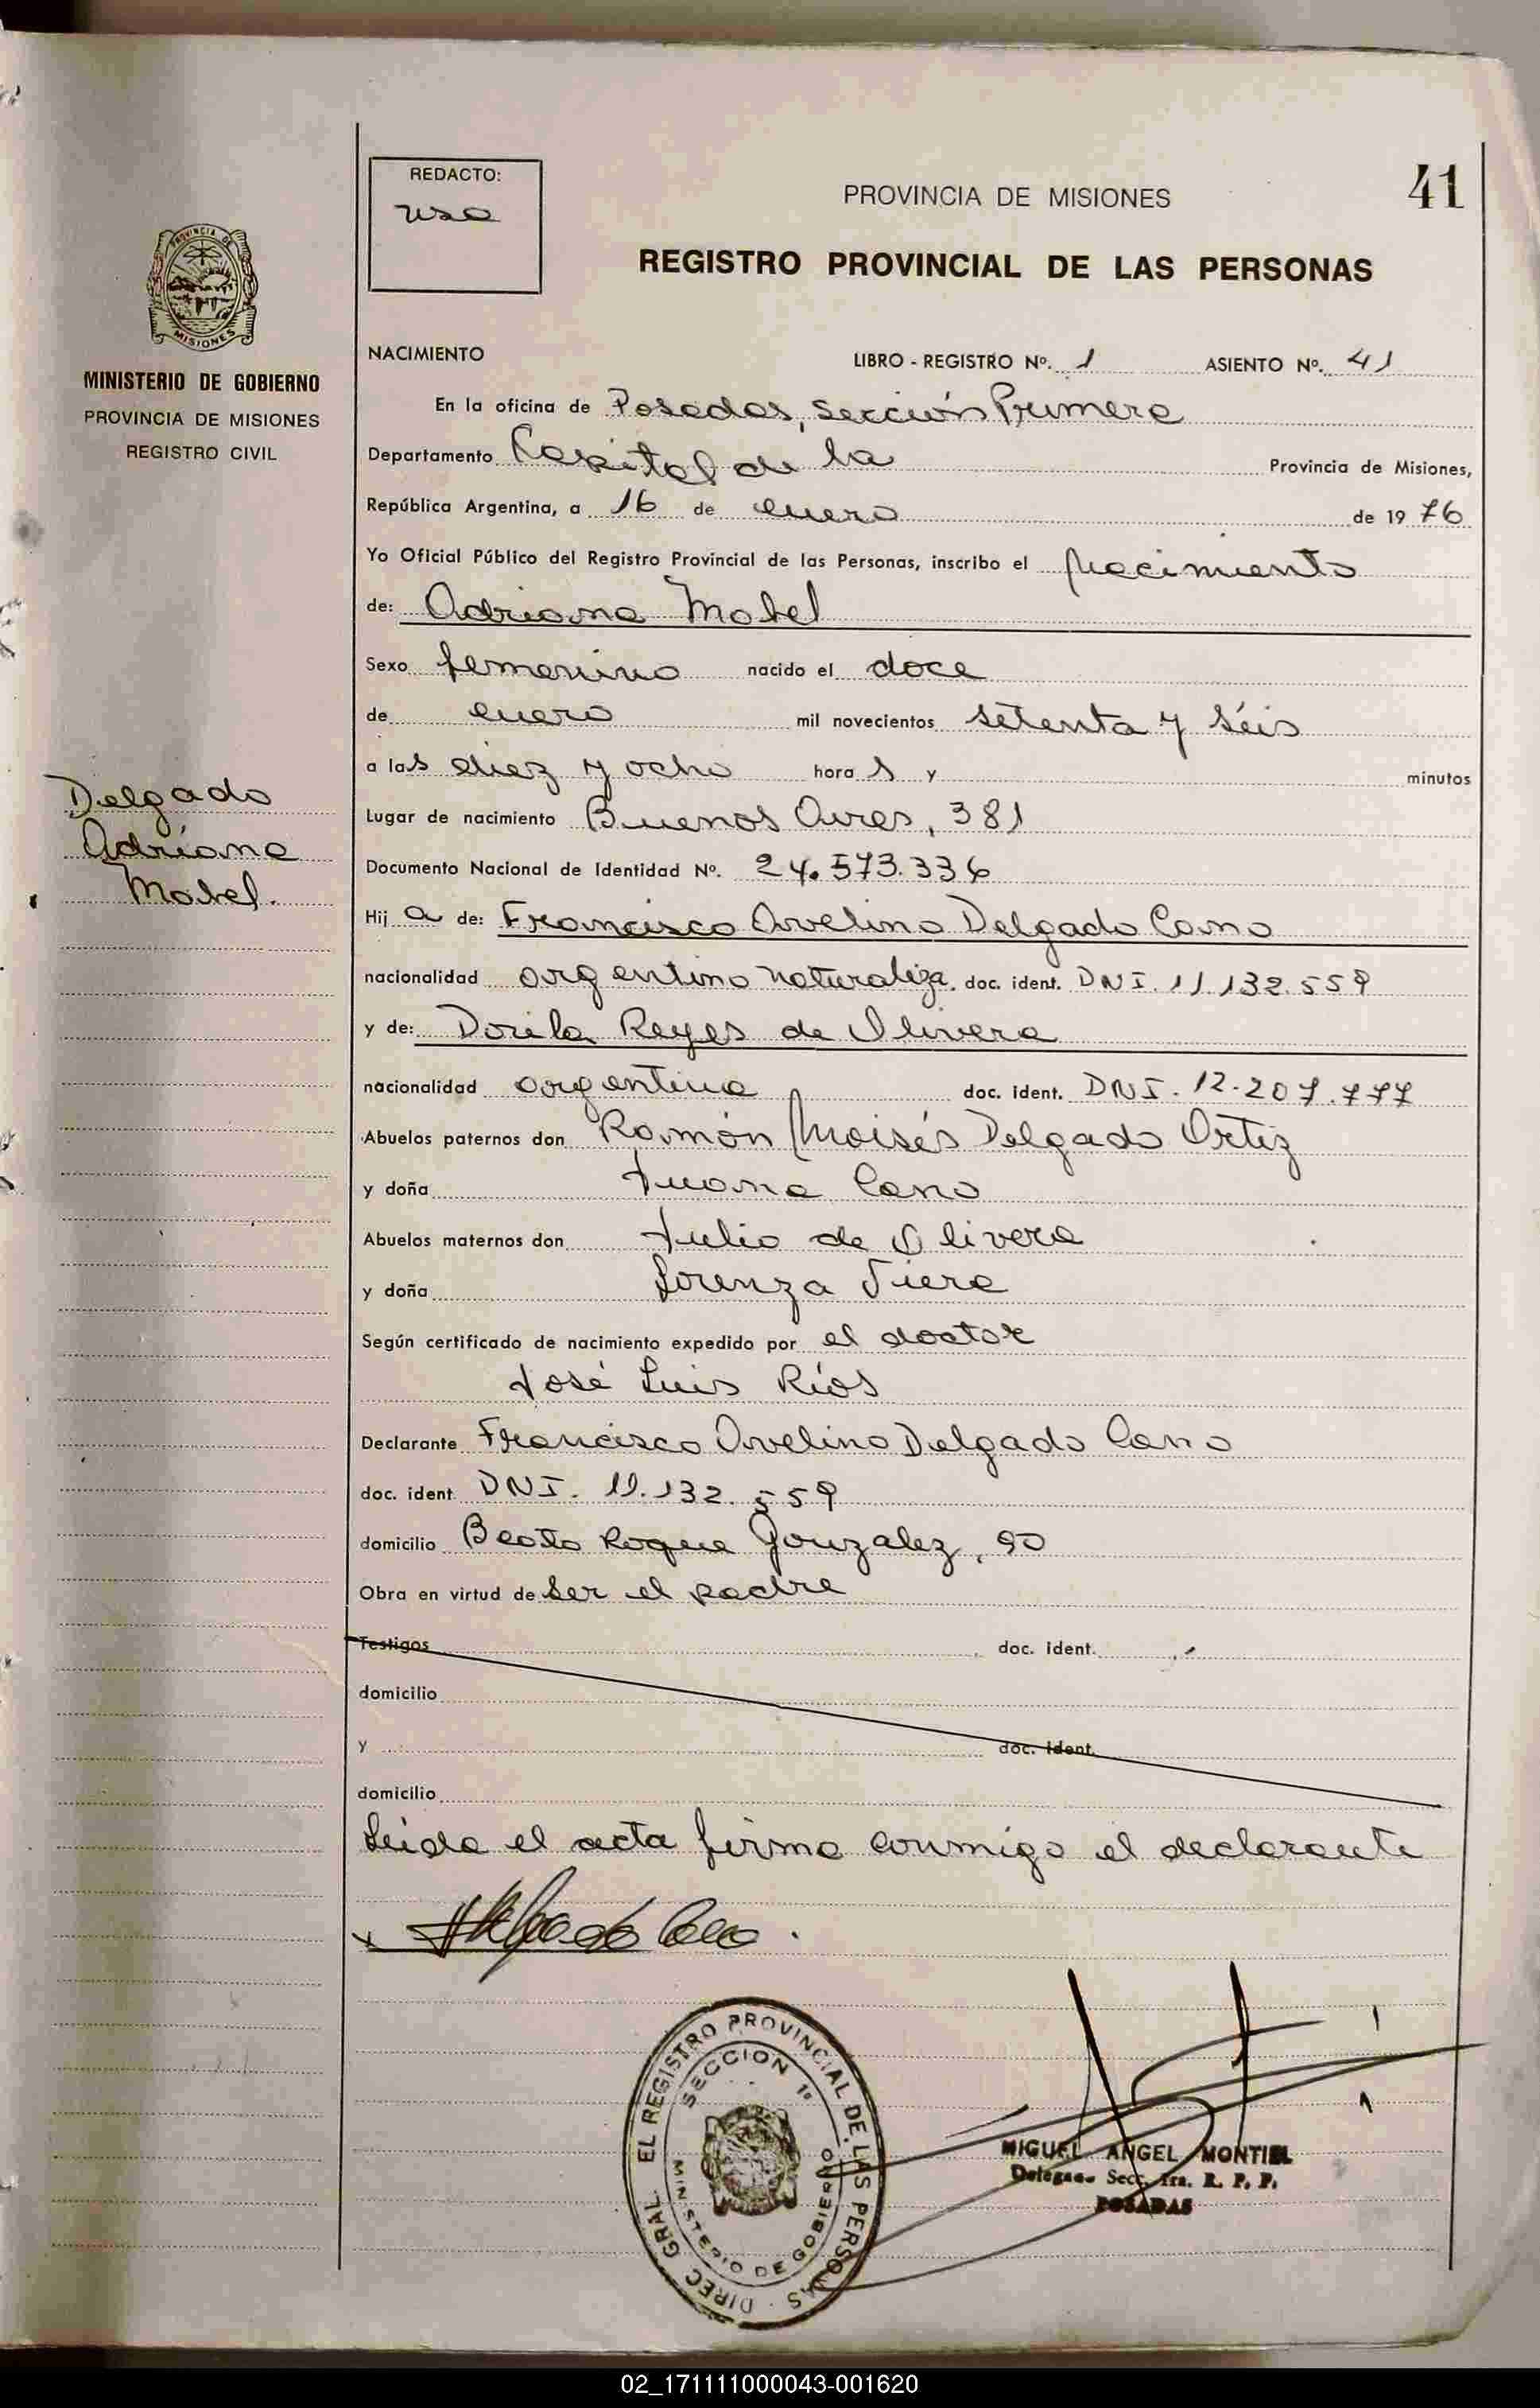 REDACTO:
PROVINCIA DE MISIONES
41
REGISTRO PROVINCIAL DE LAS PERSONAS
PROVINCIA DE
MISIONES
MINISTERIO DE GOBIERNO
PROVINCIA DE MISIONES
REGISTRO CIVIL
NACIMIENTO LIBRO - REGISTRO Nº. 1 ASIENTO Nº. 41
En la oficina de Posadas, sección Primera
Departamento Capital de la Provincia de Misiones,
República Argentina, a 16 de enero de 1976
Yo Oficial Público del Registro Provincial de las Personas, inscribo el Nacimiento
de: Adriana Mabel
Sexo femenino nacido el doce
de enero mil novecientos setenta y séis
a las diez y ocho horas y minutos
Delgado
Adriana
Mabel.
Lugar de nacimiento Buenos Aires, 381
Documento Nacional de Identidad Nº. 24.573.336
Hija de: Francisco Avelino Delgado Cano
nacionalidad argentino naturaliza. doc. ident. DNI. 11.132.559
y de: Dorila Reyes de Olivera
nacionalidad argentina doc. ident. DNI. 12.207.777
Abuelos paternos don Ramón Moisés Delgado Ortiz
y doña Juana Cano
Abuelos maternos don Julio de Olivera
y doña Lorenza Viera
Según certificado de nacimiento expedido por el doctor
José Luis Ríos
Declarante Francisco Avelino Delgado Cano
doc. ident. DNI. 11.132.559
domicilio Beato Roque Gonzalez, 90
Obra en virtud de ser el padre
Testigos doc. ident.
domicilio
y doc. ident.
domicilio
Leida el acta firma conmigo el declarante
DIREC. GRAL. EL REGISTRO PROVINCIAL DE LAS PERSONAS
SECCION 1ª
MINISTERIO DE GOBIERNO
MIGUEL ANGEL MONTIEL
Delegado Secc. 1ra. R. P. P.
POSADAS
02_171111000043-001620